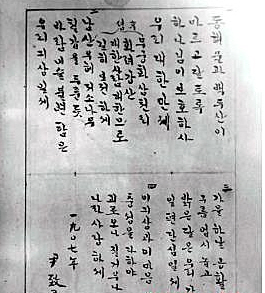 동해물과 백두산이
마르고 달토록
하나님이 보호하사
우리 대한 만세
후렴
무궁화 삼천리
화려 강산
대한 사람 대한으로
길히 보전하세
남산 우헤 저 소나무
철갑을 두른 듯
바람 이슬 불변함은
우리 긔상일세
三
가을 하날 공활
구름 업시 놉고
밝은 달은 우리 가
일편단심일세
四
이 긔상과 이 마음
충성을 다하야
괴로오나 질거우나
나라 사랑하세
一九〇七年
尹致